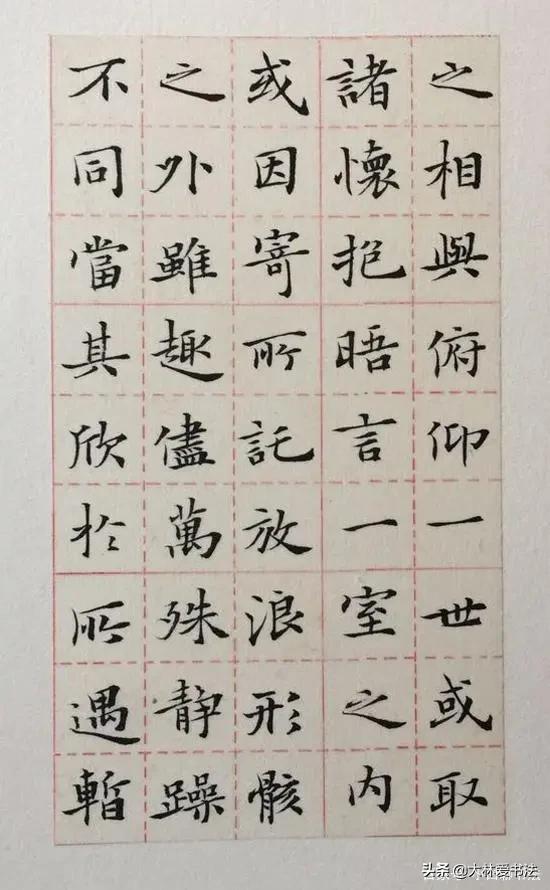 之相與俯仰一世或取
諸懷抱晤言一室之内
或因寄所託放浪形骸
之外雖趣儘萬殊静躁
不同當其欣於所遇暫
头条 @大林爱书法